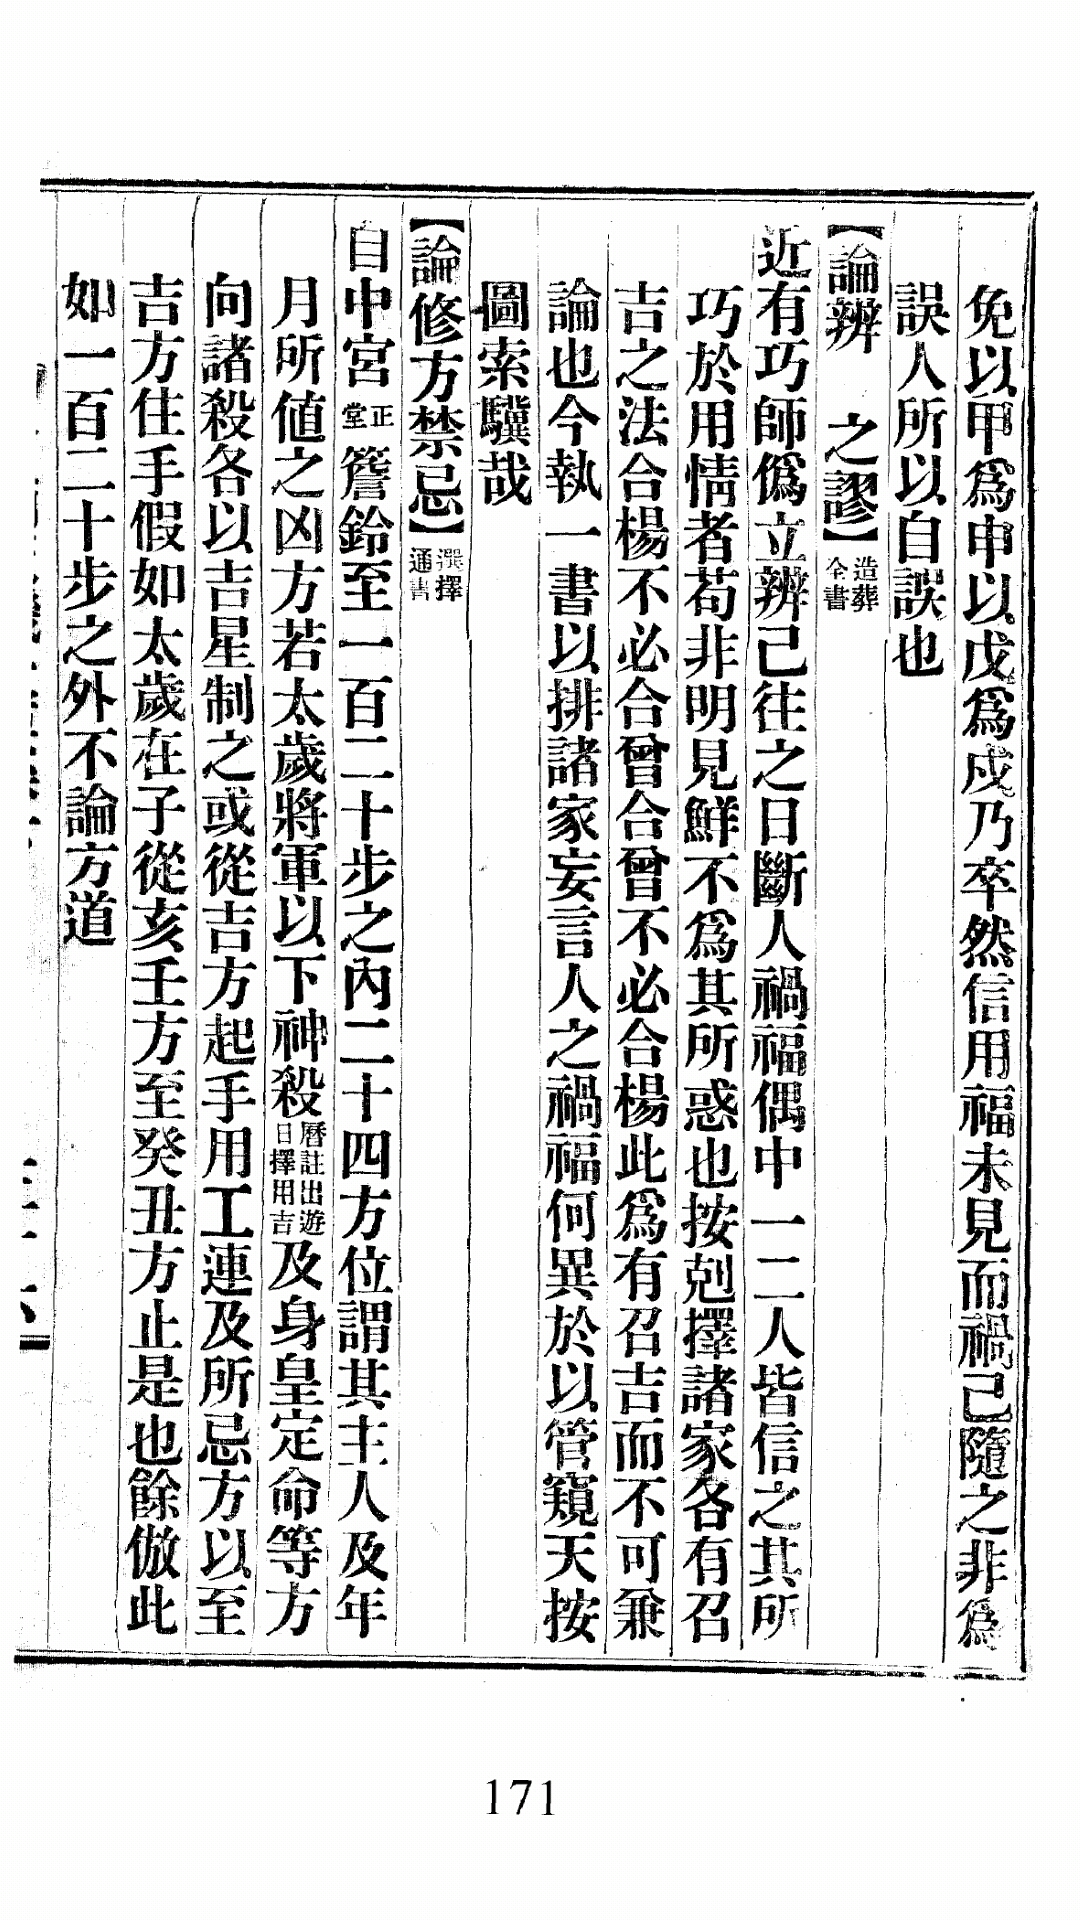 免以甲爲申以戊爲戍乃卒然信用福未見而禍己隨之非爲
誤人所以自誤也
【論辨　之謬】造葬全書
近有巧師僞立辨己往之日斷人禍福偶中一二人皆信之其所
巧於用情者苟非明見鮮不爲其所惑也按剋擇諸家各有召
吉之法合楊不必合曾合曾不必合楊此爲有召吉而不可兼
論也今執一書以排諸家妄言人之禍福何異於以管窺天按
圖索驥哉
【論修方禁忌】選擇通書
自中宮正堂簷鈴至一百二十步之內二十四方位謂其主人及年
月所値之凶方若太歲將軍以下神殺曆註出遊日擇用吉及身皇定命等方
向諸殺各以吉星制之或從吉方起手用工連及所忌方以至
吉方住手假如太歲在子從亥壬方至癸丑方止是也餘倣此
如一百二十步之外不論方道
171